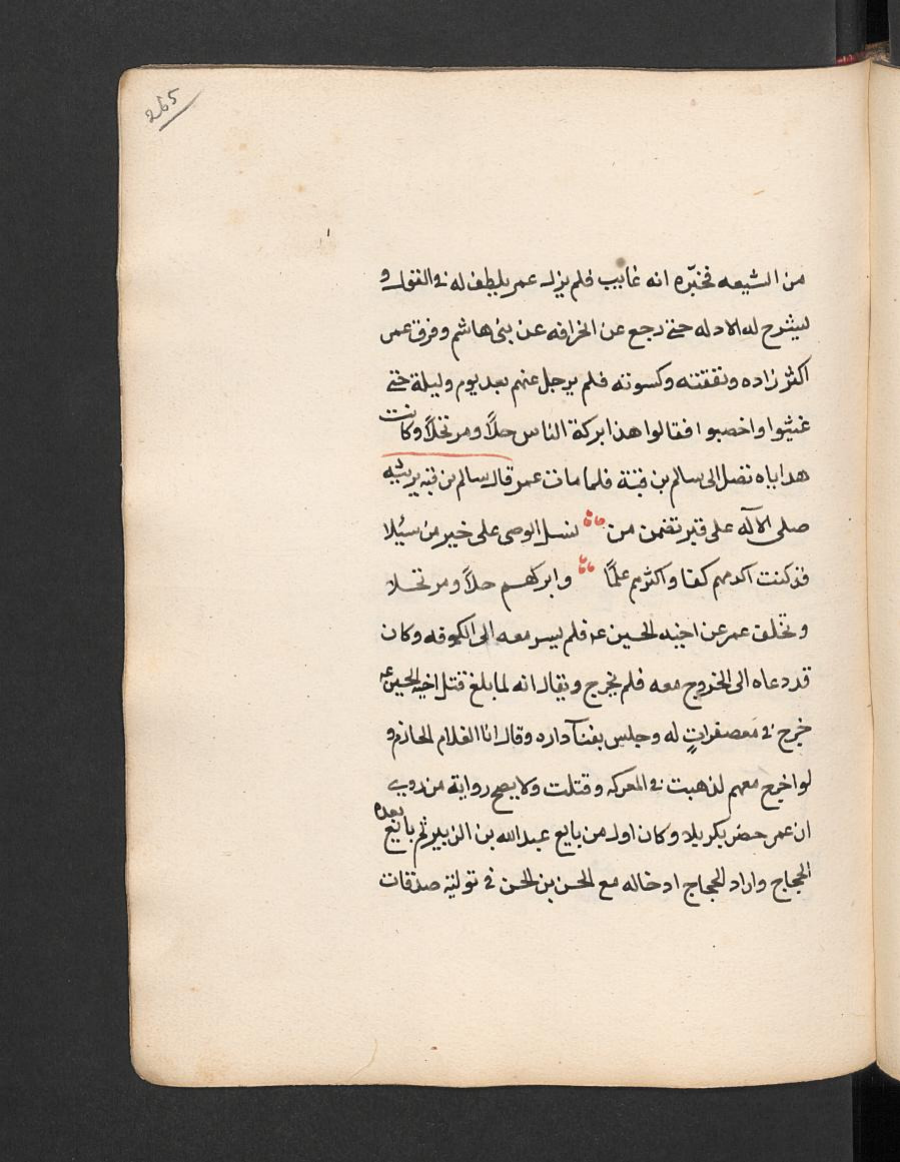 265
من الشيعه فخبّره انه غايب فلم يزل عمر يلطف له في القول و
يشرح له الادله حتى رجع عن انحرافه عن بنى هاشم و فرق عمر
اكثر زاده ونفقته وكسوته فلم يرحل عنهم بعد يوم وليلة حتى
غيثوا واخصبوا فقالوا هذا بركة الناس حلاً ومرتحلاً وكانت
هداياه تصل الى سالم بن قبة فلما مات عمر قال سالم بن قبه يرثيه
صلى الاله على قبر تضمن من نسل الوصى على خير من سيلا
قد كنت اكرمهم كفا واكثرهم علمًا وابركهم حلاً ومرتحلا
وتخلف عمر عن اخيه الحسين ع فلم يسر معه الى الكوفه وكان
قد دعاه الى الخروج معه فلم يخرج ويقال انه لما بلغ قتل اخيه الحسين ع
خرج في معصفراتٍ له وجلس بفنآ داره وقال انا الغلام الحازم و
لو اخرج معهم لذهبت في المعركه وقتلت ولا يصح رواية من روى
ان عمر حضر بكربلا وكان اول من بايع عبدالله بن الزبير ثم بايع بعده
الحجاج واراد الحجاج ادخاله مع الحسن بن الحسن في تولية صدقات